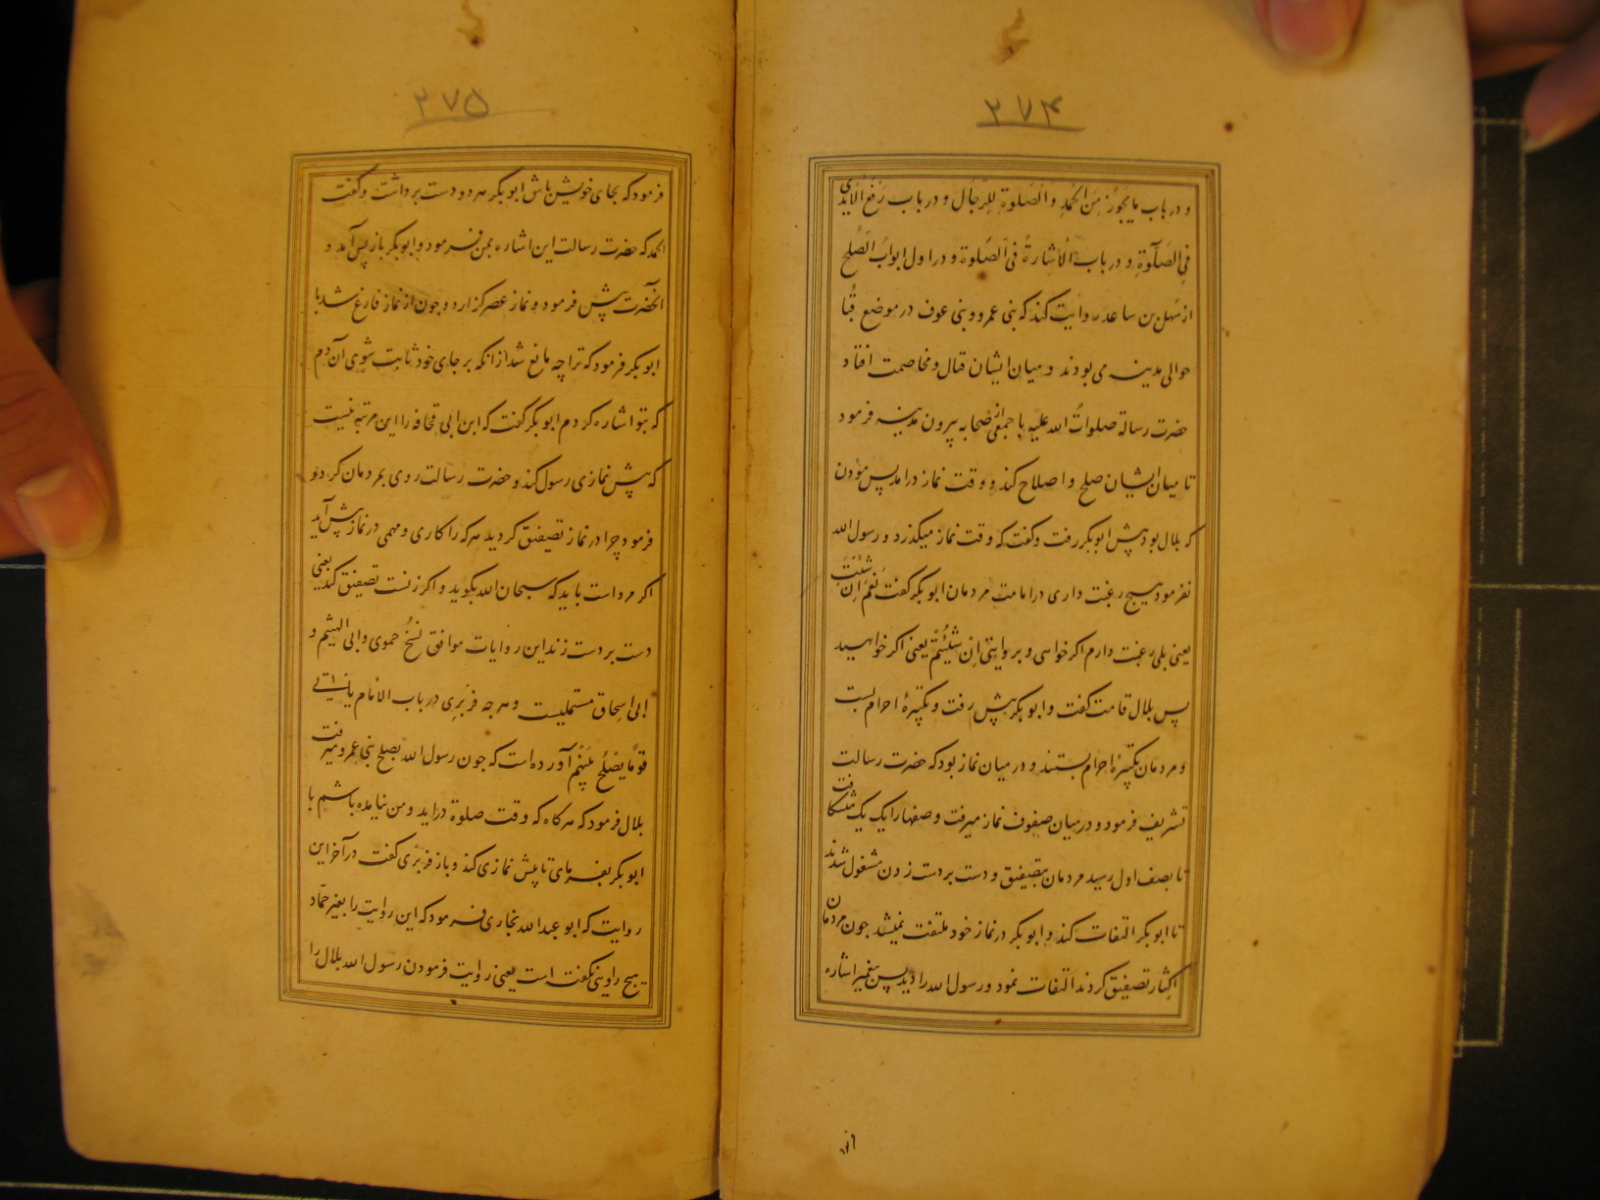 ۲۷۴
و در باب ما یجوز من الحمد و الصلوة للرجال و در باب رفع الایدی
فی الصلوة و در باب الاشارة فی الصلوة و در اول ابواب الصلح
از سهل بن ساعد روایت کند که بنی عمرو و بنی عوف در موضع قبا
حوالی مدینه می بودند و میان ایشان قتال و مخاصمت افتاد
حضرت رسالة صلوات الله علیه با جمعی از صحابه بیرون مدینه فرمود
تا میان ایشان صلح و اصلاح کند و وقت نماز درامد پس موذن
که بلال بود پیش ابوبکر رفت و گفت که وقت نماز میگذرد و رسول الله
نفرمود هیچ رغبت داری در امامت مردمان ابوبکر گفت نعم ان شئت
یعنی بلی رغبت دارم اگر خواهی و بروایتی ان شئتم یعنی اگر خواهید
پس بلال قامت گفت و ابوبکر پیش رفت و تکبیرهٔ احرام بست
و مردمان تکبیرهٔ احرام بستند و در میان نماز بود که حضرت رسالت
تشریف فرمود و در میان صفوف نماز میرفت و صفها را یک یک میشکافت
تا بصف اول رسید مردمان بتصفیق و دست بر دست زدن مشغول شدند
تا ابوبکر التفات کند و ابوبکر در نماز خود ملتفت نمیشد جون مردمان
اکثار تصفیق کردند التفات نمود و رسول الله را دید پس پیغمبر اشاره
۲۷۵
فرمود که بجای خویش باش ابوبکر هر دو دست برداشت و گفت
الحمد که حضرت رسالت این اشاره بمن فرمود و ابوبکر باز پس آمد و
آنحضرت پیش فرمود و نماز عصر گزارد و جون از نماز فارغ شد با
ابوبکر فرمود که ترا چه مانع شد از انکه بر جای خود ثابت شوی آن دم
که بتو اشاره کردم ابوبکر گفت که ابن ابی قحافه را این مرتبه نیست
که پیش نمازی رسول کند و حضرت رسالت روی بمردمان کرد و
فرمود چرا در نماز تصفیق کردید هر که را کاری و مهمی در نماز پیش آید
اگر مرد است باید که سبحان الله بگوید و اگر زنست تصفیق کند یعنی
دست بر دست زند این روایات موافق نسخ حموی و ابی الهیثم و
ابی اسحاق مستملیست و هر چه فربری در باب الامام یاتی
قوما یصلح بینهم آورده است که جون رسول الله بصلح بنی عمرو میرفت
بلال فرمود که هر گاه که وقت صلوة دراید و من نیامده باشم با
ابوبکر بفرمای تا پیش نمازی کند و باز فربری گفت در آخر این
روایت که ابو عبدالله بخاری فرمود که این روایت را بغیر حماد
هیچ راوی نگفته است یعنی روایت فرمودن رسول الله بلال را